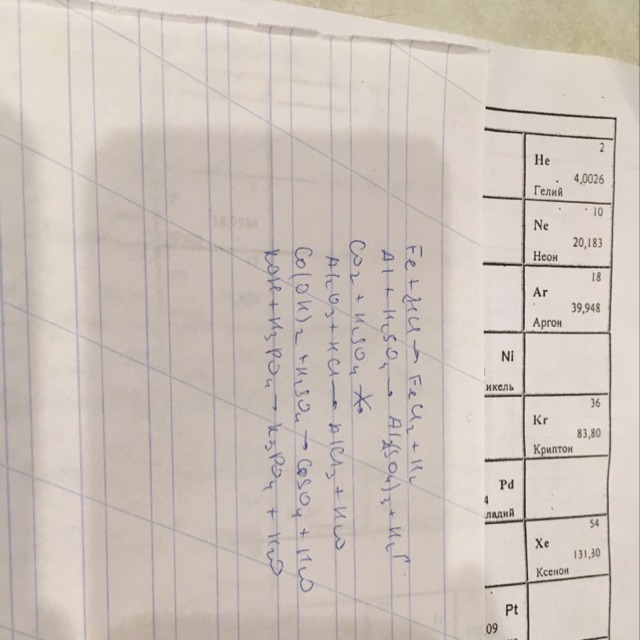 Fe + HCl → FeCl2 + H2
Al + H2SO4 → Al2(SO4)3 + H2↑
CO2 + H2SO4
Al2O3 + HCl → AlCl3 + H2O
Co(OH)2 + H2SO4 → CoSO4 + H2O
KOH + H3PO4 → K3PO4 + H2O
2
He
4,0026
Гелий
10
Ne
20,183
Неон
18
Ar
39,948
Аргон
Ni
икель
36
Kr
83,80
Криптон
Pd
4
ладий
54
Xe
131,30
Ксенон
Pt
09